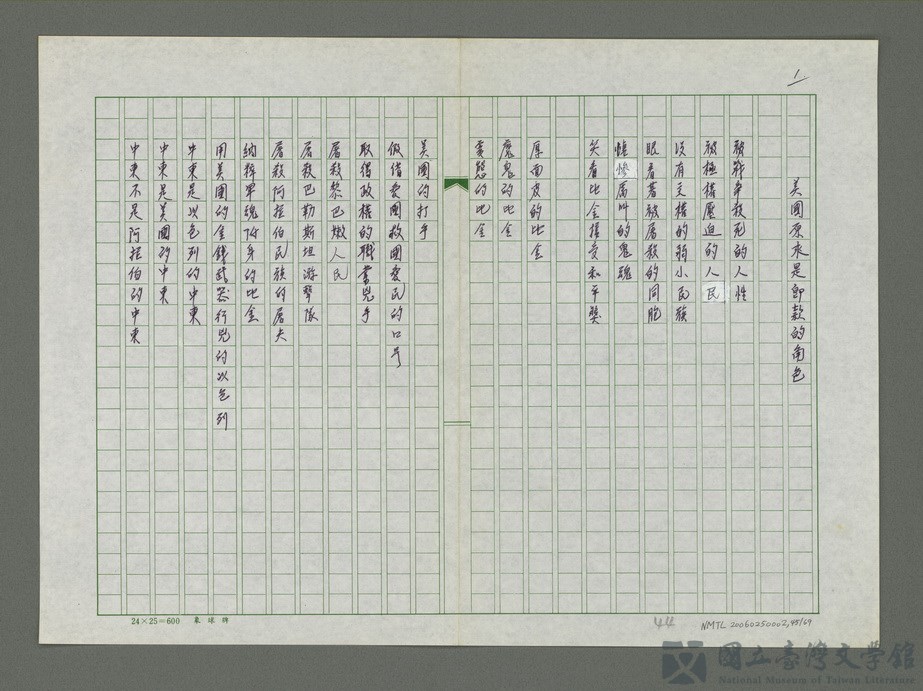 1
美國原來是卸款的角色
被戰爭殺死的人性
被極權壓迫的人民
沒有支撐的弱小民族
眼看著被屠殺的同胞
悽慘厲叫的鬼魂
笑看比金接受和平獎
厚面皮的比金
魔鬼的比金
的比金
美國的打手
假借愛國救國愛民的口号
取得政權的職業兇手
屠殺黎巴嫩人民
屠殺巴勒斯坦游擊隊
屠殺阿拉伯民族的屠夫
納粹軍魂附身的比金
用美國的金錢武器行兇的以色列
中東是以色列的中東
中東是美國的中東
中東不是阿拉伯的中東
24×25=600
44
NMTL 20060250002,45/69
國立臺灣文學館
National Museum of Taiwan Literature